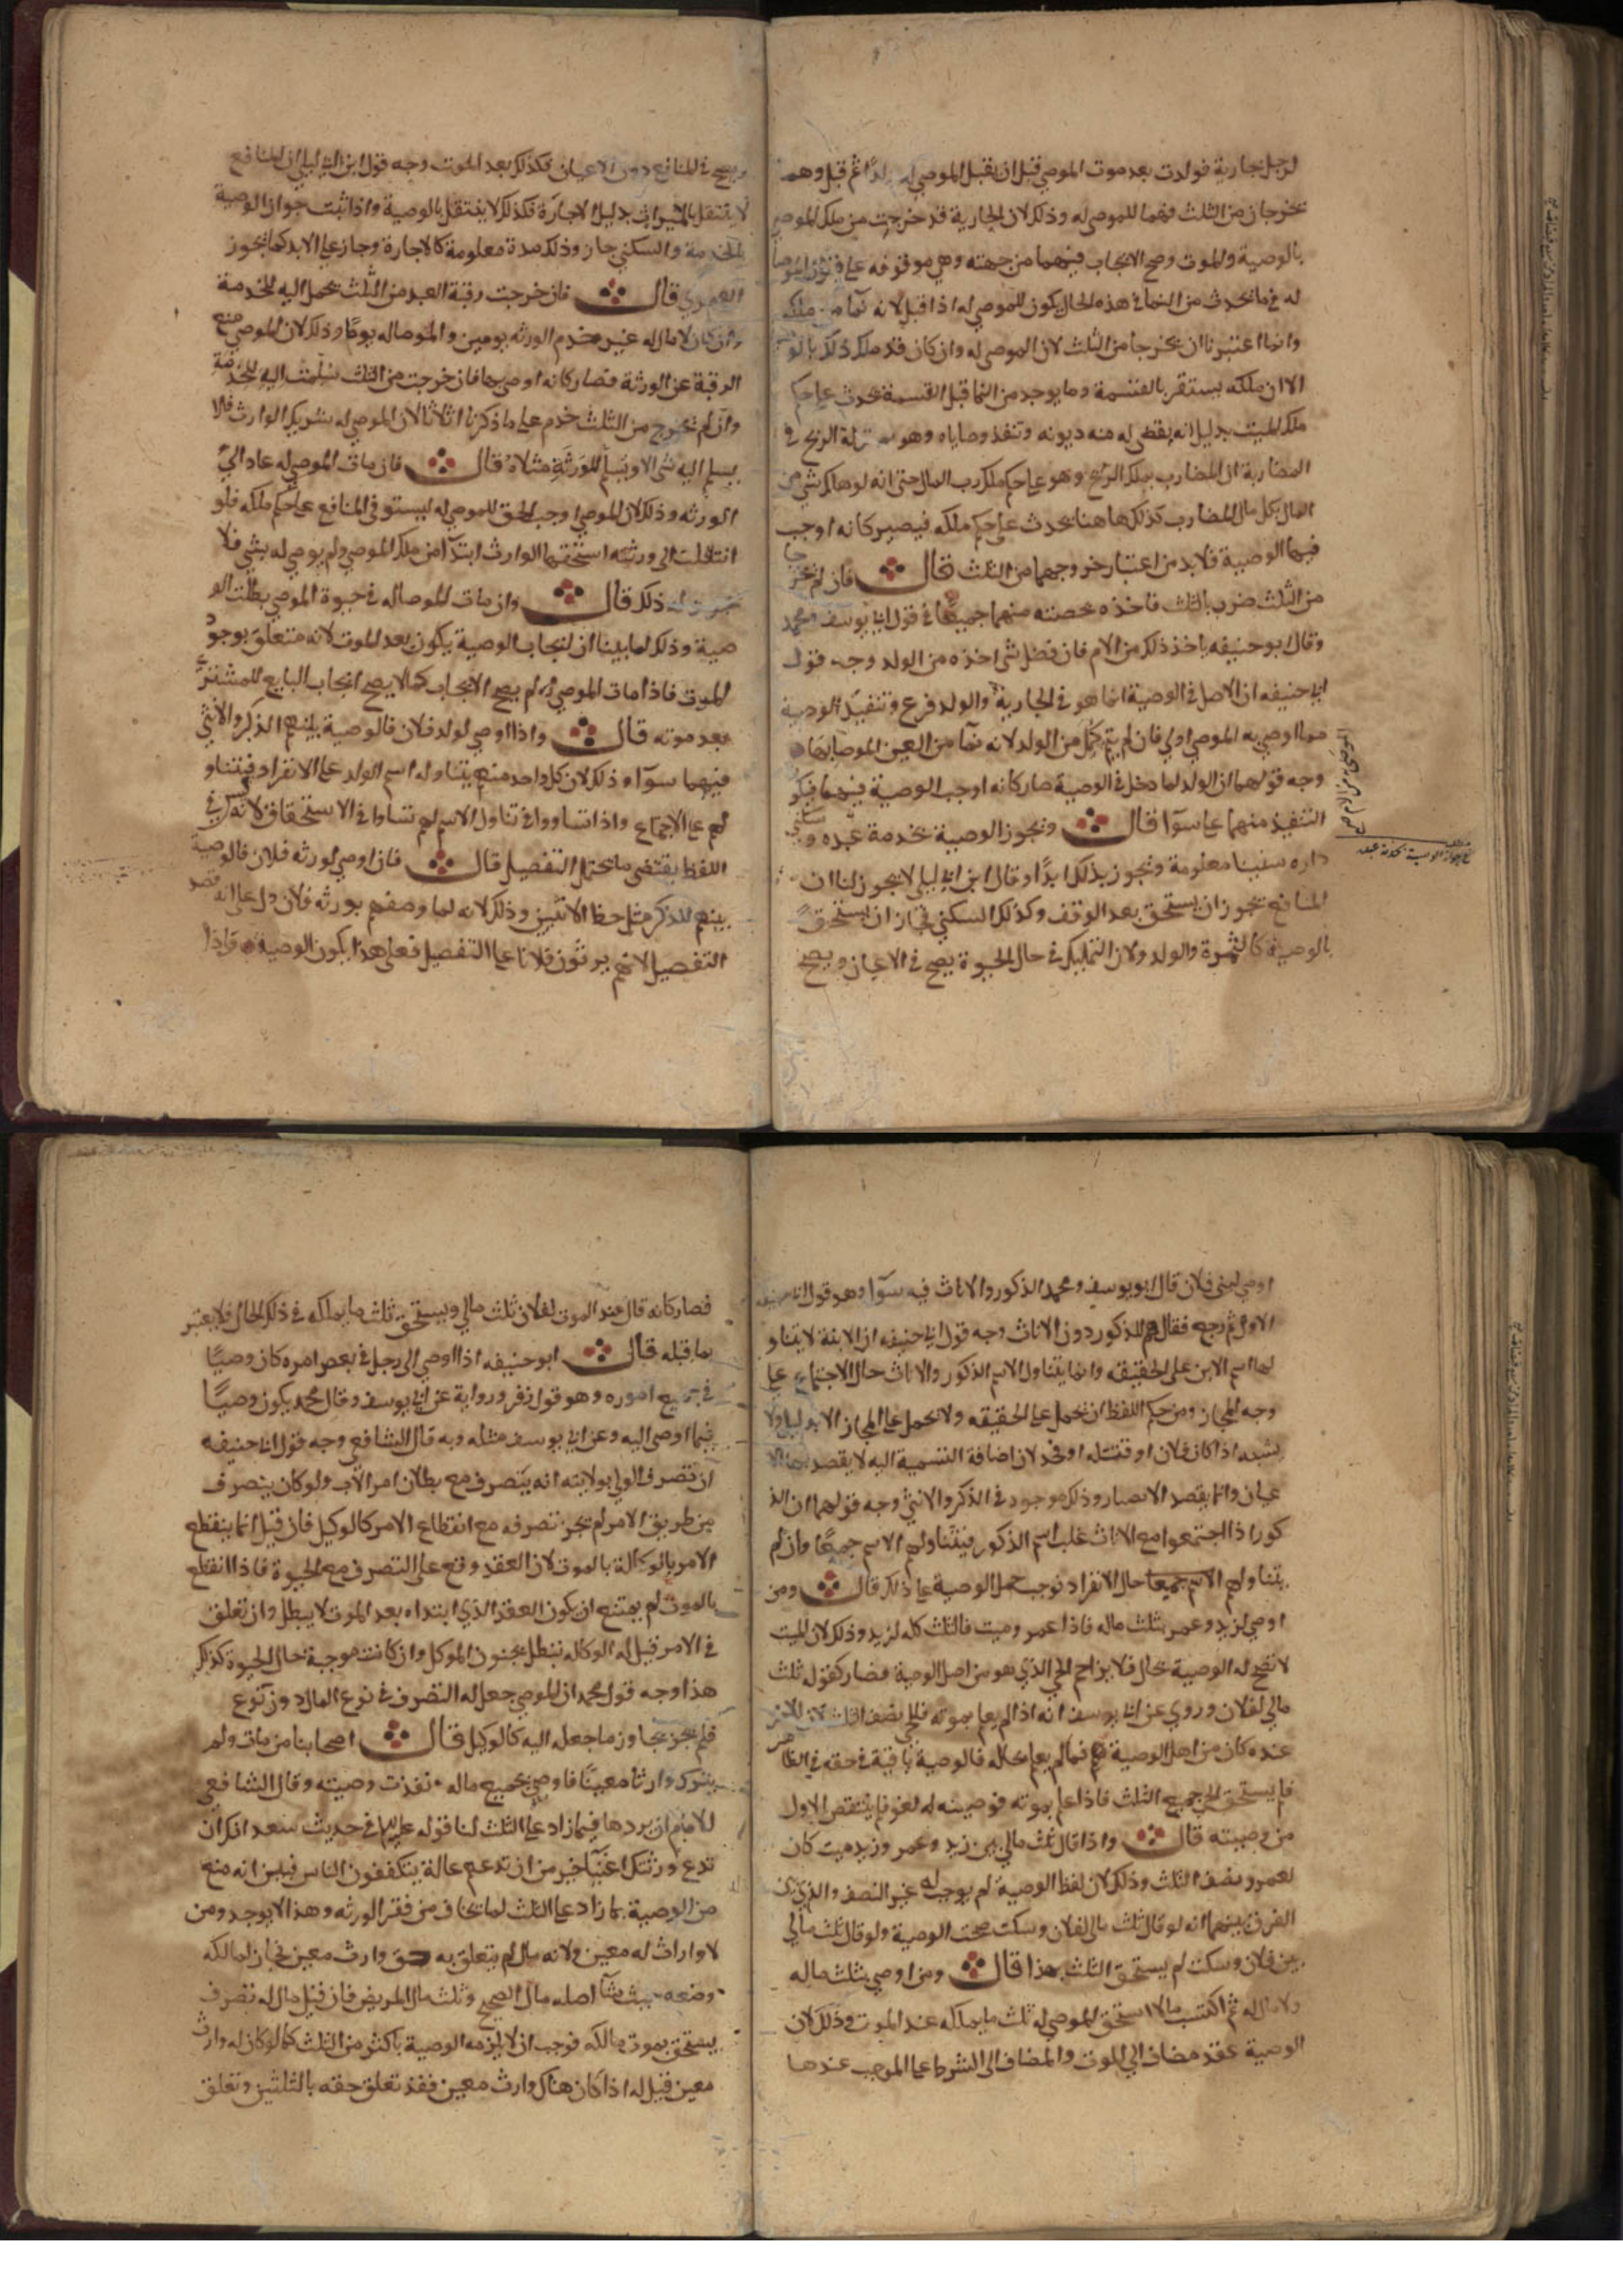 لرجل بجارية فولدت بعد موت الموصي قبل ان يقبل الموصي له ولدًا ثم قبل وهما
يخرجان من الثلث فهما للموصي له وذلك لان الجارية قد خرجت من ملك الموصي
بالوصية والموت وصح الايجاب فيهما من جهته وهي موقوفة على قبول الموصا
له فما يحدث من النما في هذه الحال يكون للموصي له اذا قبل لانه نما من ملكه
وانما اعتبرنا ان يخرجا من الثلث لان الموصي له وان كان قد ملك ذلك بالوصية
الا ان ملكه يستقر بالقسمة وما يوجد من النما قبل القسمة يحدث على حكم
ملك الميت بدليل انه يقضى له منه ديونه وتنفذ وصاياه وهو بمنزلة الربح في
المضاربة ان المضارب يملك الربح وهو على حكم ملك رب المال حتى انه لو هلك شي من
المال بكل مال المضارب كذلك هاهنا يحدث على حكم ملكه فيصير كانه اوجب
فيها الوصية فلا بد من اعتبار خروجهما من الثلث قال فان لم يخرجا
من الثلث ضرب بالثلث فاخذه بحصته منهما جميعًا في قول ابي يوسف ومحمد
وقال ابو حنيفه ياخذ ذلك من الام فان فضل شي اخذه من الولد وجه قول
ابي حنيفه ان الاصل في الوصية انما هو في الجارية والولد فرع وتنفيذ الوصية
مما اوصي به الموصي اولي فان لم يتم كمل من الولد لانه نما من العين الموصا بها
وجه قولهما ان الولد لما دخل في الوصية صار كانه اوجب الوصية فيهما فيكون
التنفيذ منهما على سوآ قال وتجوز الوصية بخدمة عبده وسكني
داره سنينا معلومة وتجوز بذلك ابدًا وقال ابن ابي ليلى لا يجوز لنا ان
المنافع يجوز ان يستحق بعد الوقف وكذلك السكني فجاز ان يستحق
بالوصية كالثمرة والولد ولان التمليك في حال الحيوة يصح في الاعيان ويصح
في جواز الوصية بخدمة عبده
ويصح في المنافع دون الاعيان فكذلك بعد الموت وجه قول ابن ابي ليلى ان المنافع
لا ينتقل بالميراث بدليل الاجارة فكذلك لا ينتقل بالوصية واذا ثبت جواز الوصية
بالخدمة والسكني جاز وذلك مدة معلومة كالاجارة وجاز على الابد كما يجوز
العمري قال فان خرجت رقبة العبد من الثلث يحمل اليه للخدمة
وان كان لا مال له غيره خدم الورثه يومين والموصا له يومًا وذلك لان الموصي منع
الرقبة عن الورثة فصار كانه اوصي بها فان خرجت من الثلث سلمت اليه للخدمة
وان لم تخرج من الثلث خدم على ما ذكرنا اثلاثا لان الموصي له شريك الوارث فلا
يسلم اليه شي الا ويسلم للورثة مثلاه قال فان مات الموصي له عاد الي
الورثه وذلك لان الموصي اوجب الحق للموصي له ليستوفى المنافع على حكم ملكه فلو
انتقلت الى ورثته استحقها الوارث ابتدآ من ملك الموصي ولم يوص له بشي فلا
يجوز له ذلك قال وان مات الموصا له في حيوة الموصي بطلت الو
صية وذلك لما بينا ان ايجاب الوصية يكون بعد الموت لانه متعلق بوجود
الموت فاذا مات الموصي له لم يصح الايجاب كما لا يصح ايجاب البايع للمشتري
بعد موته قال واذا اوصي لولد فلان فالوصية بينهم الذكر والانثي
فيهما سوآء وذلك لان كل واحد منهم يتناوله اسم الولد على الانفراد فيتناو
لهم على الاجتماع واذا تساووا في تناول الاسم لهم تساوا في الاستحقاق لانه ليس في
اللفظ يقتضي ما يحتمل التفصيل قال فان اوصي لورثه فلان فالوصية
بينهم للذكر مثل حظ الانثيين وذلك لانه لما وصفهم بورثه فلان دل على انه قصد
التفصيل لانهم يرثون فلانا على التفصيل فعلى هذا يكون الوصية واذا
اوصي لبني فلان قال ابو يوسف ومحمد الذكور والاناث فيه سوآ وهو قول ابي حنيفه
الاول ثم رجع فقال هو للذكور دون الاناث وجه قول ابي حنيفه ان الابنة لا يتناو
لها اسم الابن على الحقيقه وانما يتناول الاسم الذكور والاناث حال الاجتماع على
وجه المجاز ومن حكم اللفظ ان يحمل على الحقيقه ولا يحمل على المجاز الا بدليل ولا
يشبه اذا كان فلان او قبيله او فخذ لان اضافة التسمية اليه لا يقصد بها الا
عيان وانما يقصد الانصبار وذلك موجود في الذكر والانثي وجه قولهما ان الذ
كور اذا اجتمعوا مع الاناث غلب اسم الذكور فيتناولهم الاسم جميعًا وان لم
يتناولهم الاسم جميعا حال الانفراد فوجب حمل الوصية على ذلك قال ومن
اوصي لزيد وعمر بثلث ماله فاذا عمر وميت فالثلث كله لزيد وذلك لان الميت
لا تصح له الوصية بحال فلا يزاحم الحي الذي هو من اصل الوصية فصار كقوله ثلث
مالي لفلان وروي عن ابي يوسف انه اذا لم يعلم بموته فللحي نصف الثلث لان
عنده كان من اهل الوصية فما لم يعلم بحاله فالوصية باقية في حقه في الظاهر
فلم يستحق الحي جميع الثلث فاذا علم بموته فوصيته له لغو فلم ينتقص الاول
من وصيته قال واذا قال ثلث مالي بين زيد وعمر وزيد ميت كان
لعمرو نصف الثلث وذلك لان لفظ الوصية لم يوجب له غير النصف والذي
الفرق بينهما انه لو قال ثلث مالي لفلان وسكت صحت الوصية ولو قال ثلث مالي
بين فلان وسكت لم يستحق الثلث بهذا قال ومن اوصي بثلث ماله
ولا مال له ثم اكتسب مالا استحق الموصي له ثلث ما يملكه عند الموت وذلك لان
الوصية عقد مضاف الي الموت والمضاف الى الشرط على الموجب عندها
فصار كانه قال عند الموت لفلان ثلث مالي ويستحق ثلث ما يملكه في ذلك الحال فلا يعتبر
بما قبله قال ابو حنيفه اذا اوصي الى رجل في بعض امره كان وصيًا
في جميع اموره وهو قول زفر ورواية عن ابي يوسف وقال محمد يكون وصيًا
فيما اوصى اليه وعن ابي يوسف مثله وبه قال الشافعي وجه قول ابي حنيفه
ان تصرف الولي بولايته انه يتصرف مع بطلان امر الاب ولو كان يتصرف
من طريق الامر لم يجز تصرفه مع انقطاع الامر كالوكيل فان قيل انما ينقطع
الامر بالوكالة بالموت لان العقد وقع على التصرف مع الحيوة فاذا انقطع
بالموت لم يمتنع ان يكون العقد الذي ابتداه بعد الموت لا يبطل وان تعلق
في الامر قيل له الوكاله تبطل بجنون الموكل وان كانت موجبة بحال الحيوة كذلك
هذا وجه قول محمد ان الموصي جعل له التصرف في نوع المال دون نوع
فلم يجز يجاوز ما جعل اليه كالوكيل قال اصحابنا من مات ولم
يترك وارثا معينًا فاوصي بجميع ماله نفذت وصيته وقال الشافعي
للامام ان يردها فيما زاد على الثلث لنا قوله عليه السلم في حديث سعد انك ان
تدع ورثتك اغنيآ خير من ان تدعهم عالة يتكففون الناس فبين انه منع
من الوصية بما زاد على الثلث لما يخاف من فقر الورثه وهذا لا يوجد ومن
لا وارث له معين ولانه مال لم يتعلق به حق وارث معين فجاز لمالكه
وضعه حيث شآ اصله مال الصحيح وثلث مال المريض فان قيل مال له تصرف
يستحق بموت مالكه فوجب ان لا يلزمه الوصية باكثر من الثلث كما لو كان له وارث
معين قيل له اذا كان هناك وارث معين فقد تعلق حقه بالثلثين وتعلق